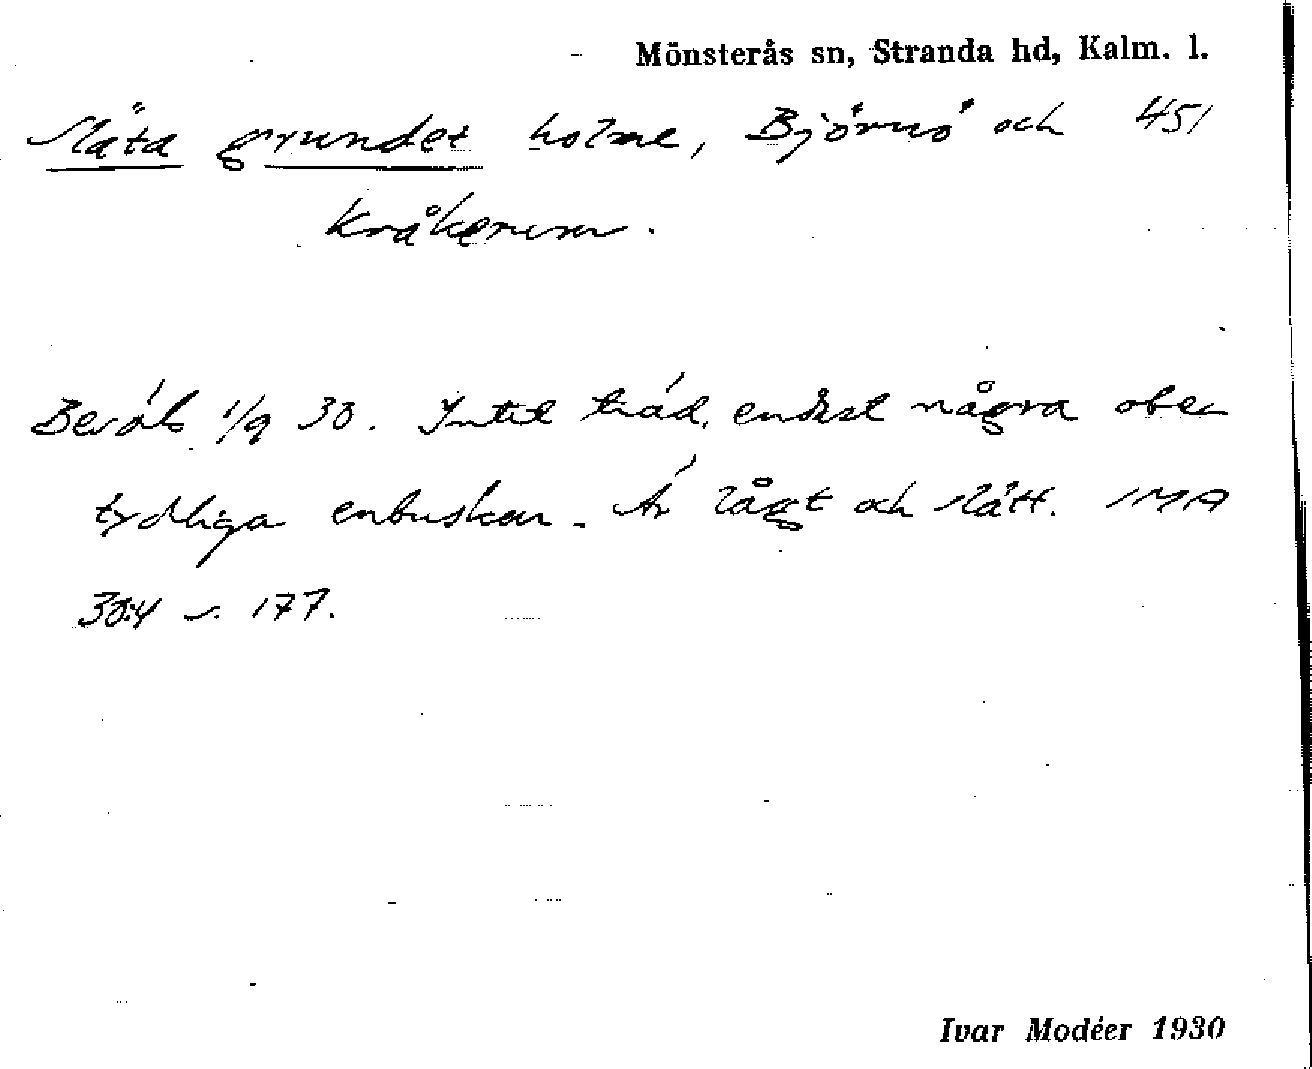 Mönsterås sn, Stranda hd, Kalm. l.
Släta grundet holme, Björnö och 451
Kråkerum.
Besökt 1/9 30. Intet träd, endast några obe-
tydliga enbuskar. Är lågt och slätt. IMA
30:4 s. 177.
Ivar Modéer 1930